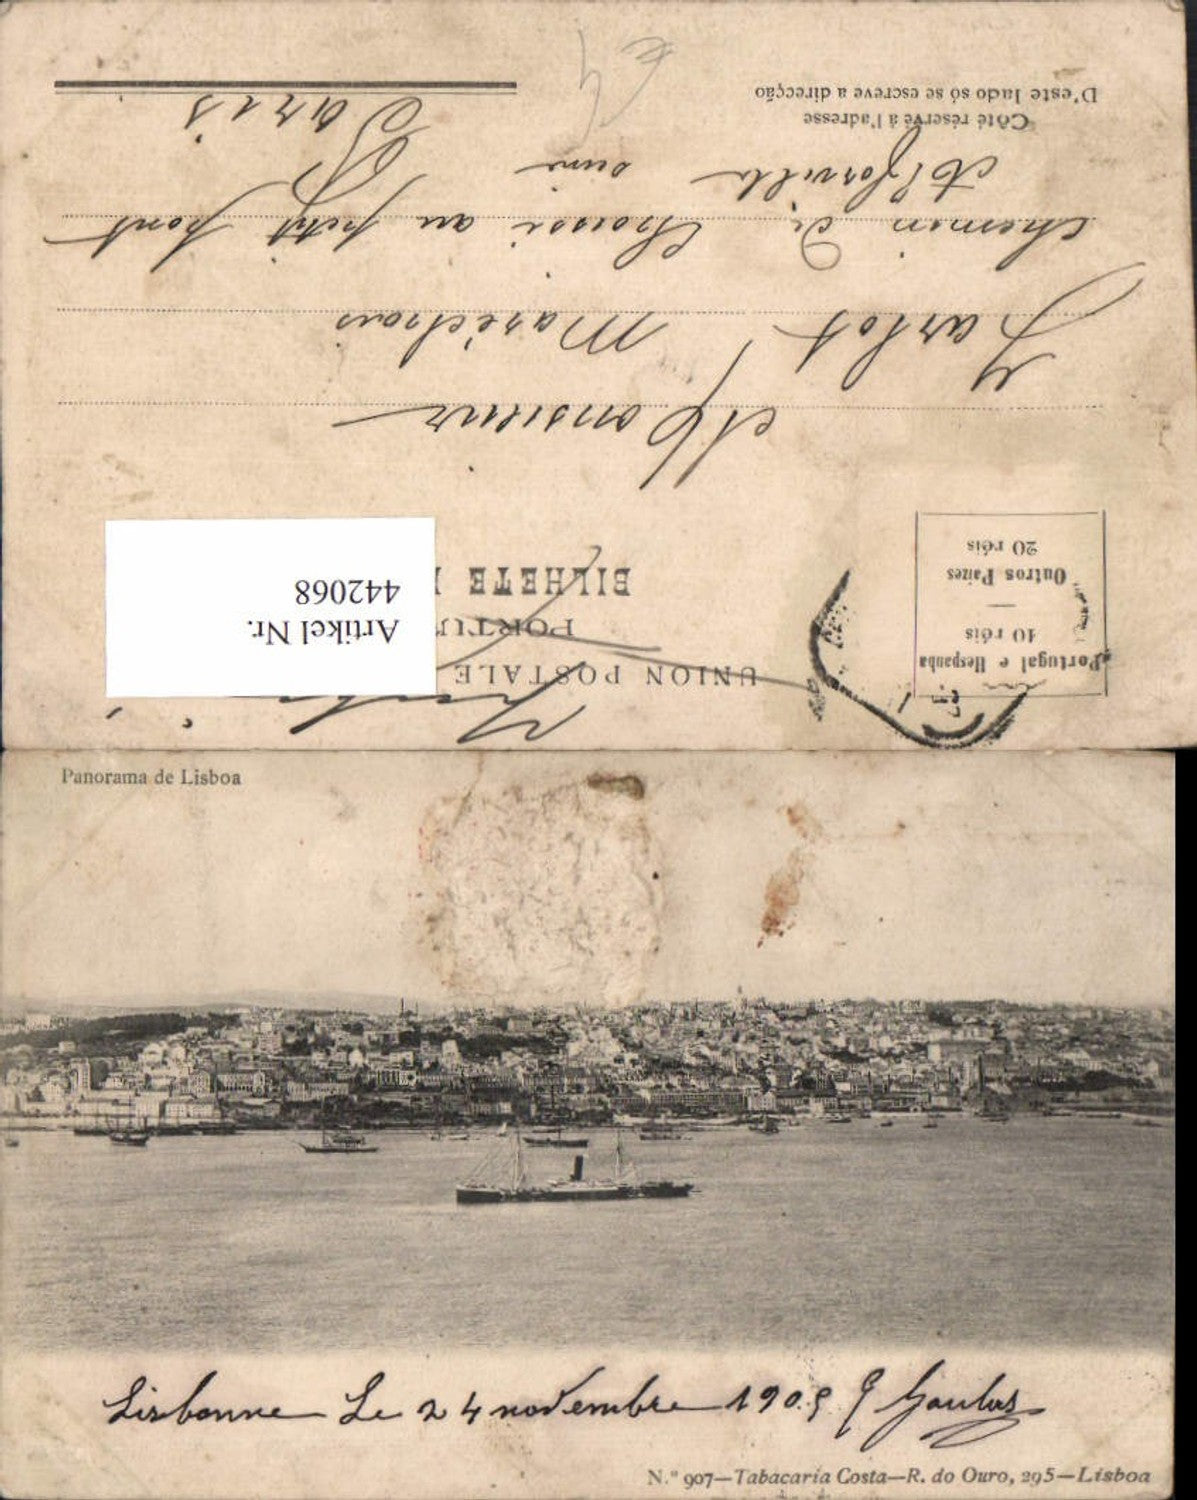 UNION POSTALE
PORTU
BILHETE
Artikel Nr.
442068
Portugal e Hespanha
10 réis
Outros Paizes
20 réis
Monsieur
Maréchaos
chemin de Choisi au petit pont
Alforville
Paris
Côté réservé á l'adresse
D'este lado só se escreve a direcção
Panorama de Lisboa
Lisbonne Le 24 novembre 1905
N.º 907—Tabacaria Costa—R. do Ouro, 295—Lisboa